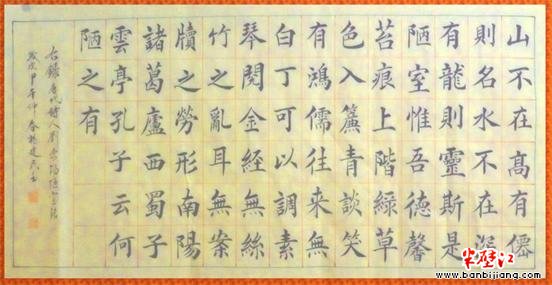 山不在高有僊
則名水不在深
有龍則靈斯是
陋室惟吾德馨
苔痕上階緑草
色入簾青談笑
有鴻儒往来無
白丁可以調素
琴閱金経無絲
竹之亂耳無案
牘之勞形南陽
諸葛廬西蜀子
雲亭孔子云何
陋之有
右錄唐代詩人劉禹錫陋室銘
歲次甲午仲春
半壁江
www.banbijiang.com